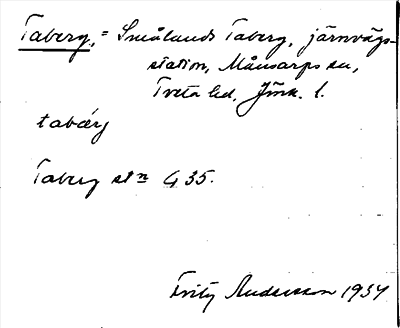 Taberg, = Smålands Taberg, järnvägs-
station, Månsarps sn,
Tveta hd, Jönk. l.
tabærj
Taberg stn G 35.
Fritz Andersson 1934